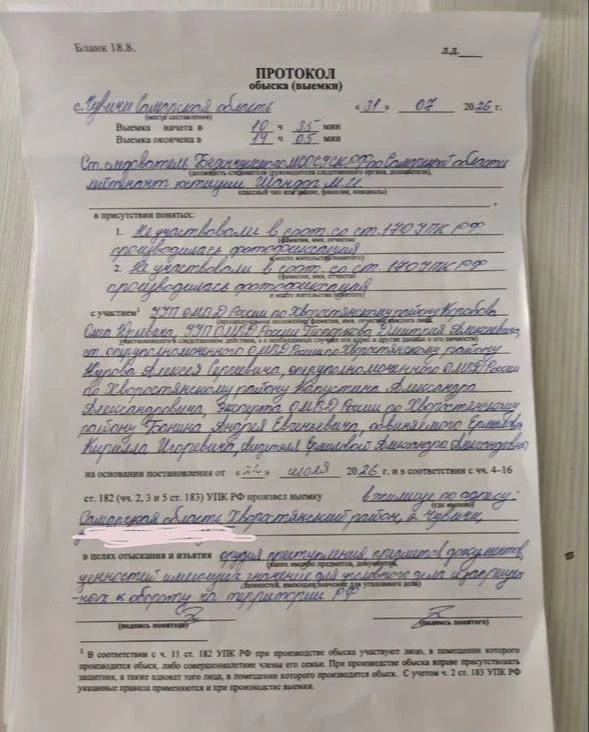 Бланк 18.8.
л.д.
ПРОТОКОЛ
обыска (выемки)
с. Чувичи Самарская область « 31 » 07 2026 г.
(место составления)
Выемка начата в 10 ч 35 мин
Выемка окончена в 14 ч 05 мин
Ст. следователь МСО СУ СК РФ по Самарской области
(должность следователя (руководителя следственного органа, дознавателя),
лейтенант юстиции М.И.
классный чин или звание, фамилия, инициалы)
в присутствии понятых:
1. Не участвовали в соот. со ст. 170 УПК РФ
(фамилия, имя, отчество
производилась фотофиксация
и место жительства понятого)
2. Не участвовали в соот. со ст. 170 УПК РФ
(фамилия, имя, отчество
производилась фотофиксация
и место жительства понятого)
с участием¹ УУП ОМВД России по Хворостянскому району
УУП ОМВД России Дмитрия Алексеевича,
ст. оперуполномоченного ОМВД России по Хворостянскому району
Алексея Сергеевича, оперуполномоченного ОМВД России
по Хворостянскому району Капустина Александра
Александровича, Эксперта ОМВД России по Хворостянскому
району Банина Андрея Евгеньевича, обвиняемого
Кирилла Игоревича, свидетеля Ермиловой
на основании постановления от « 22 » июля 2026 г. и в соответствии с чч. 4–16
ст. 182 (чч. 2, 3 и 5 ст. 183) УПК РФ произвел выемку в жилище по адресу:
(где именно)
Самарская область Хворостянский район, с. Чувичи,
в целях отыскания и изъятия орудия преступления предметов документов,
(каких именно предметов, документов,
ценностей имеющих значение для уголовного дела и запрещен-
ценностей, имеющих значение для уголовного дела)
-ных к обороту на территории РФ
(подпись понятого) (подпись понятого)
¹ В соответствии с ч. 11 ст. 182 УПК РФ при производстве обыска участвуют лицо, в помещении которого
производится обыск, либо совершеннолетние члены его семьи. При производстве обыска вправе присутствовать
защитник, а также адвокат того лица, в помещении которого производится обыск. С учетом ч. 2 ст. 183 УПК РФ
указанные правила применяются и при производстве выемки.